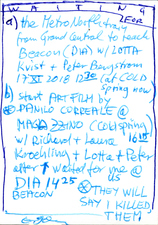 WAITING 4
2 FOR
a) the Metro North train
from Grand Central to reach
Beacon (DIA) w/ LOTTA
Kvist + Peter
17 XI 2018 (at COLD
Spring now
b) start ART FILM by
DANILO CORREALE @
MAGAZZINO (Cold Spring)
w/ Richard + Laura 16
+ Lotta + Peter
after waited for me @ us
DIA 14 25
BEACON THEY WILL
SAY I KILLED
THEM